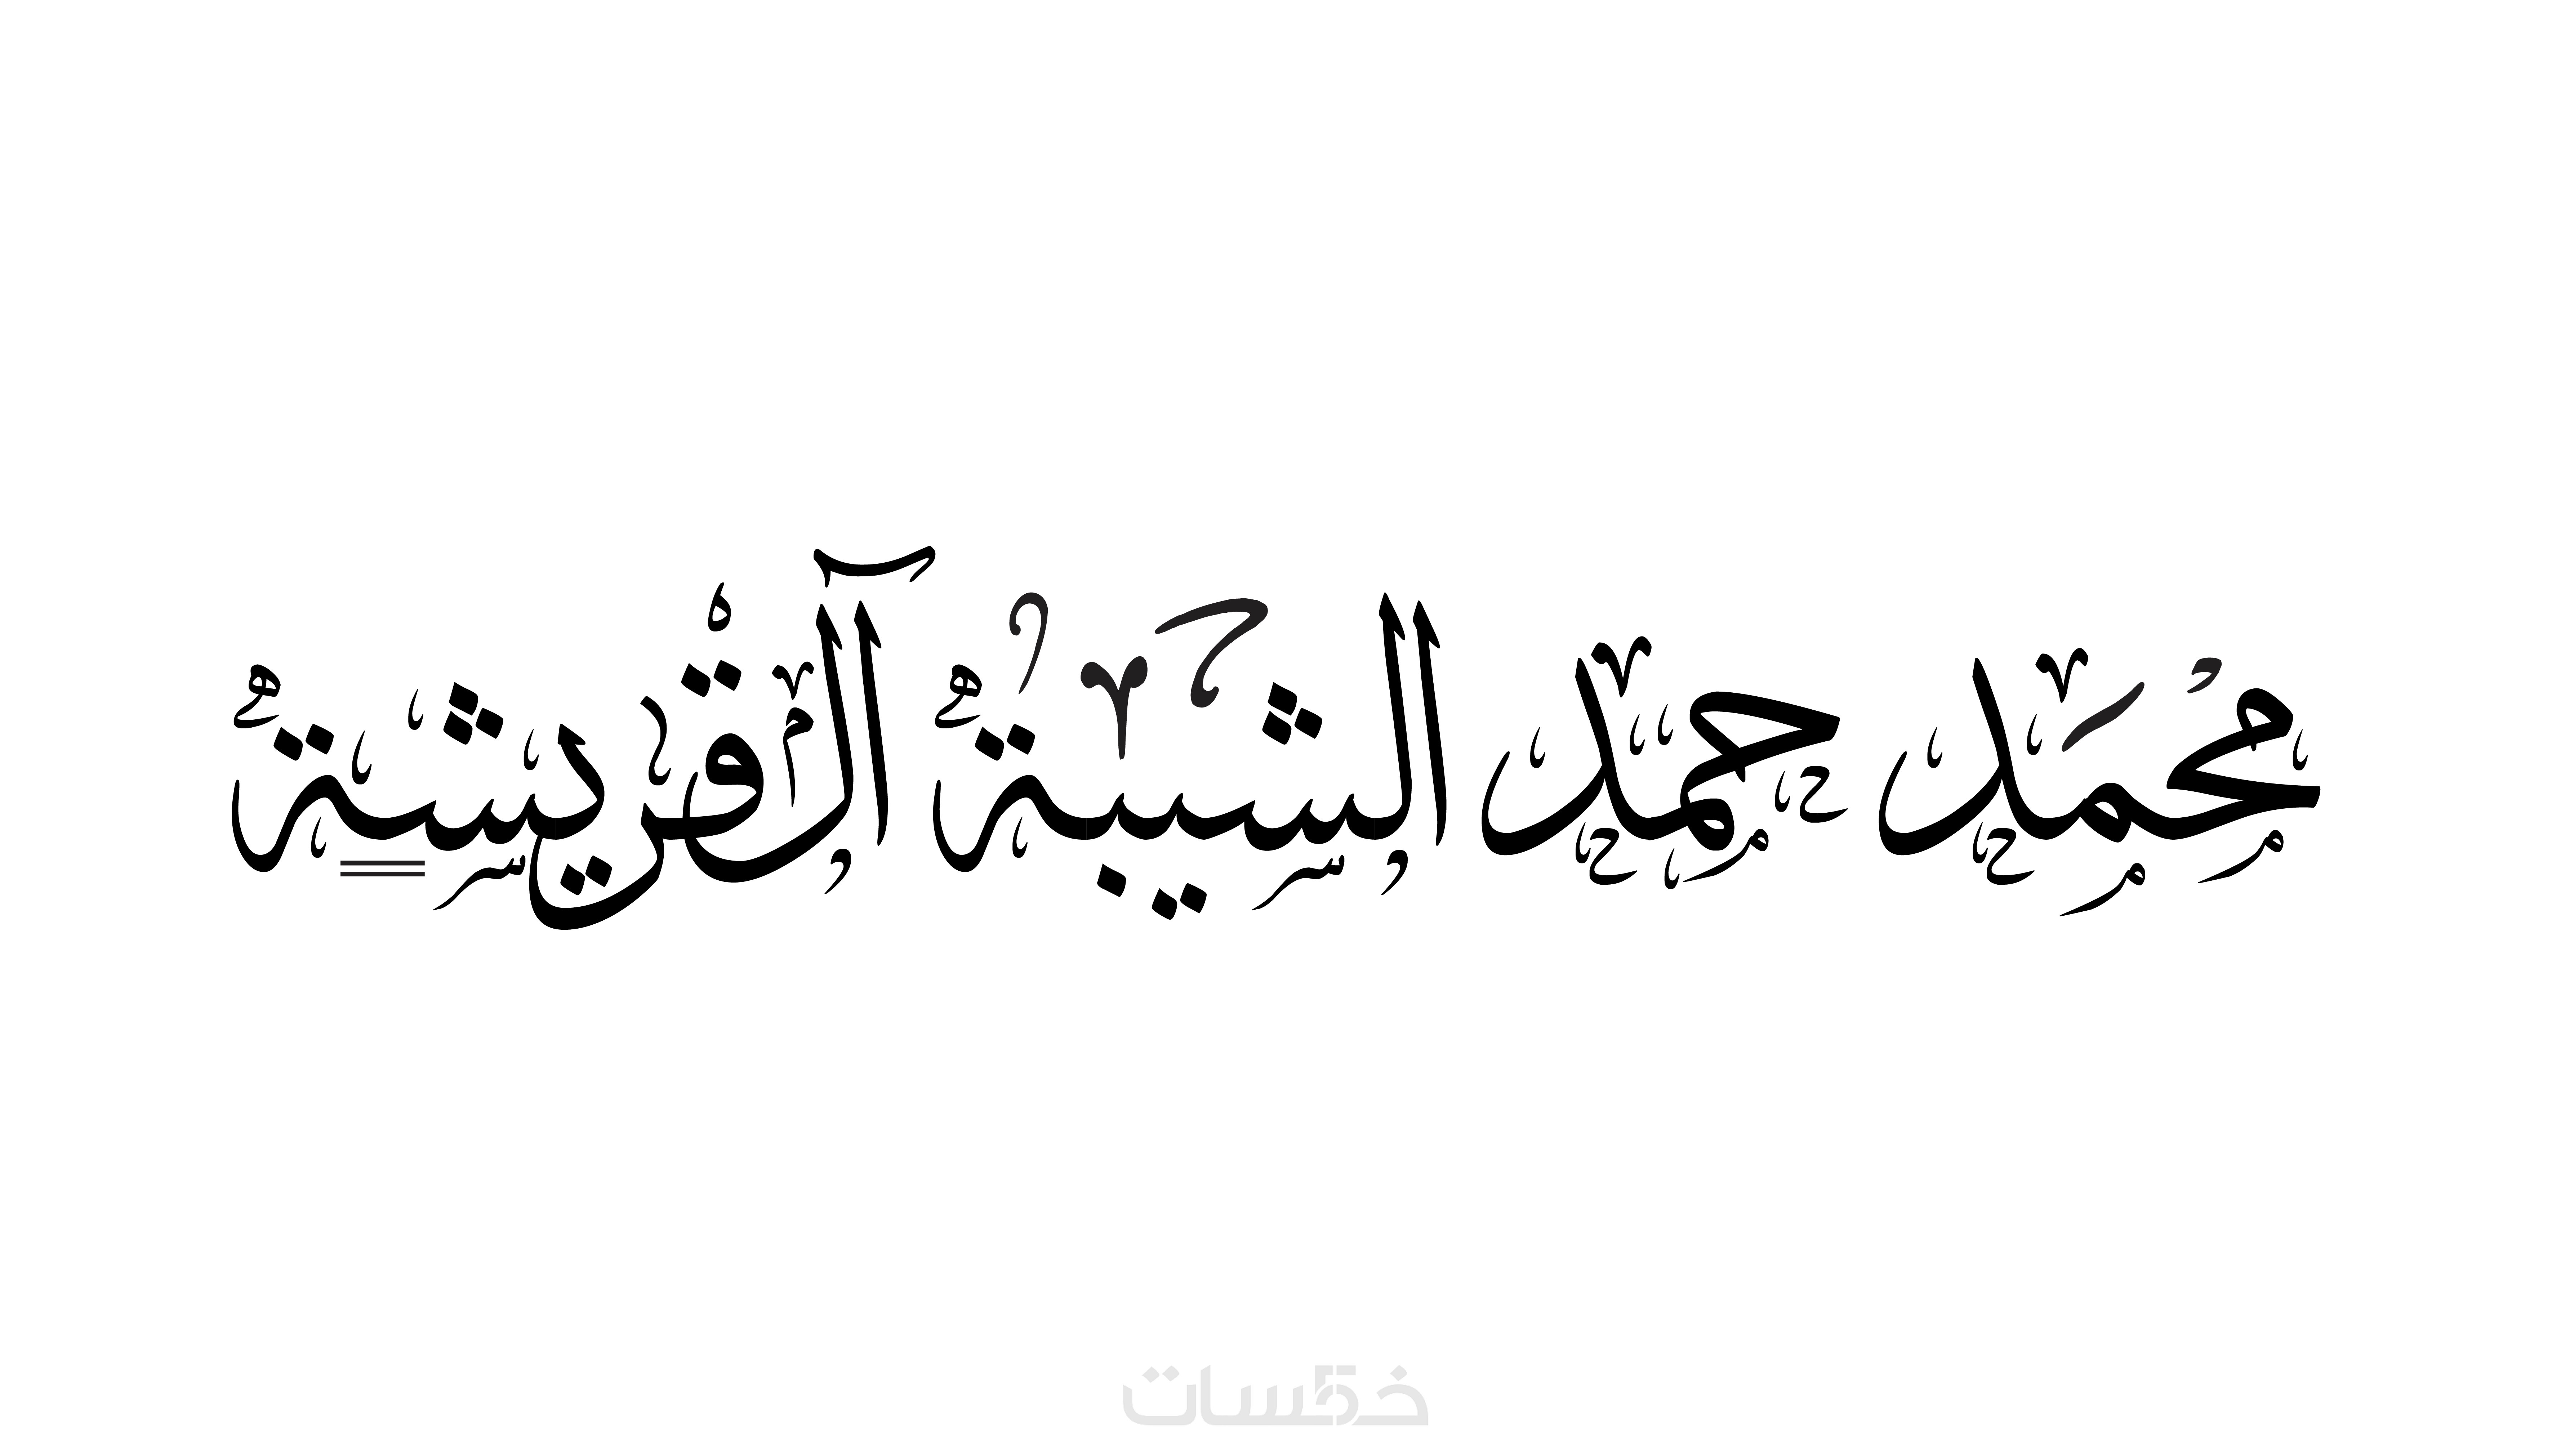 محمد حمد الشيبة آل قريشة
خمسات